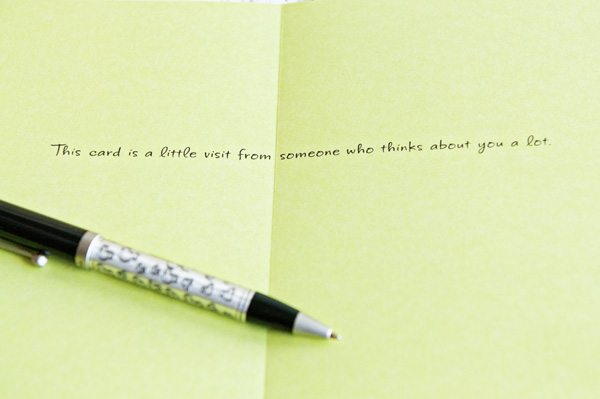 This card is a little visit from someone who thinks about you a lot.